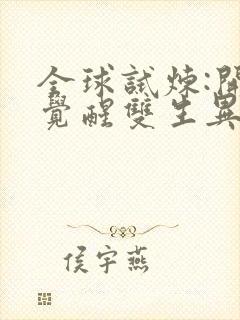 全球試炼:開
覺醒雙生異
侯宇燕